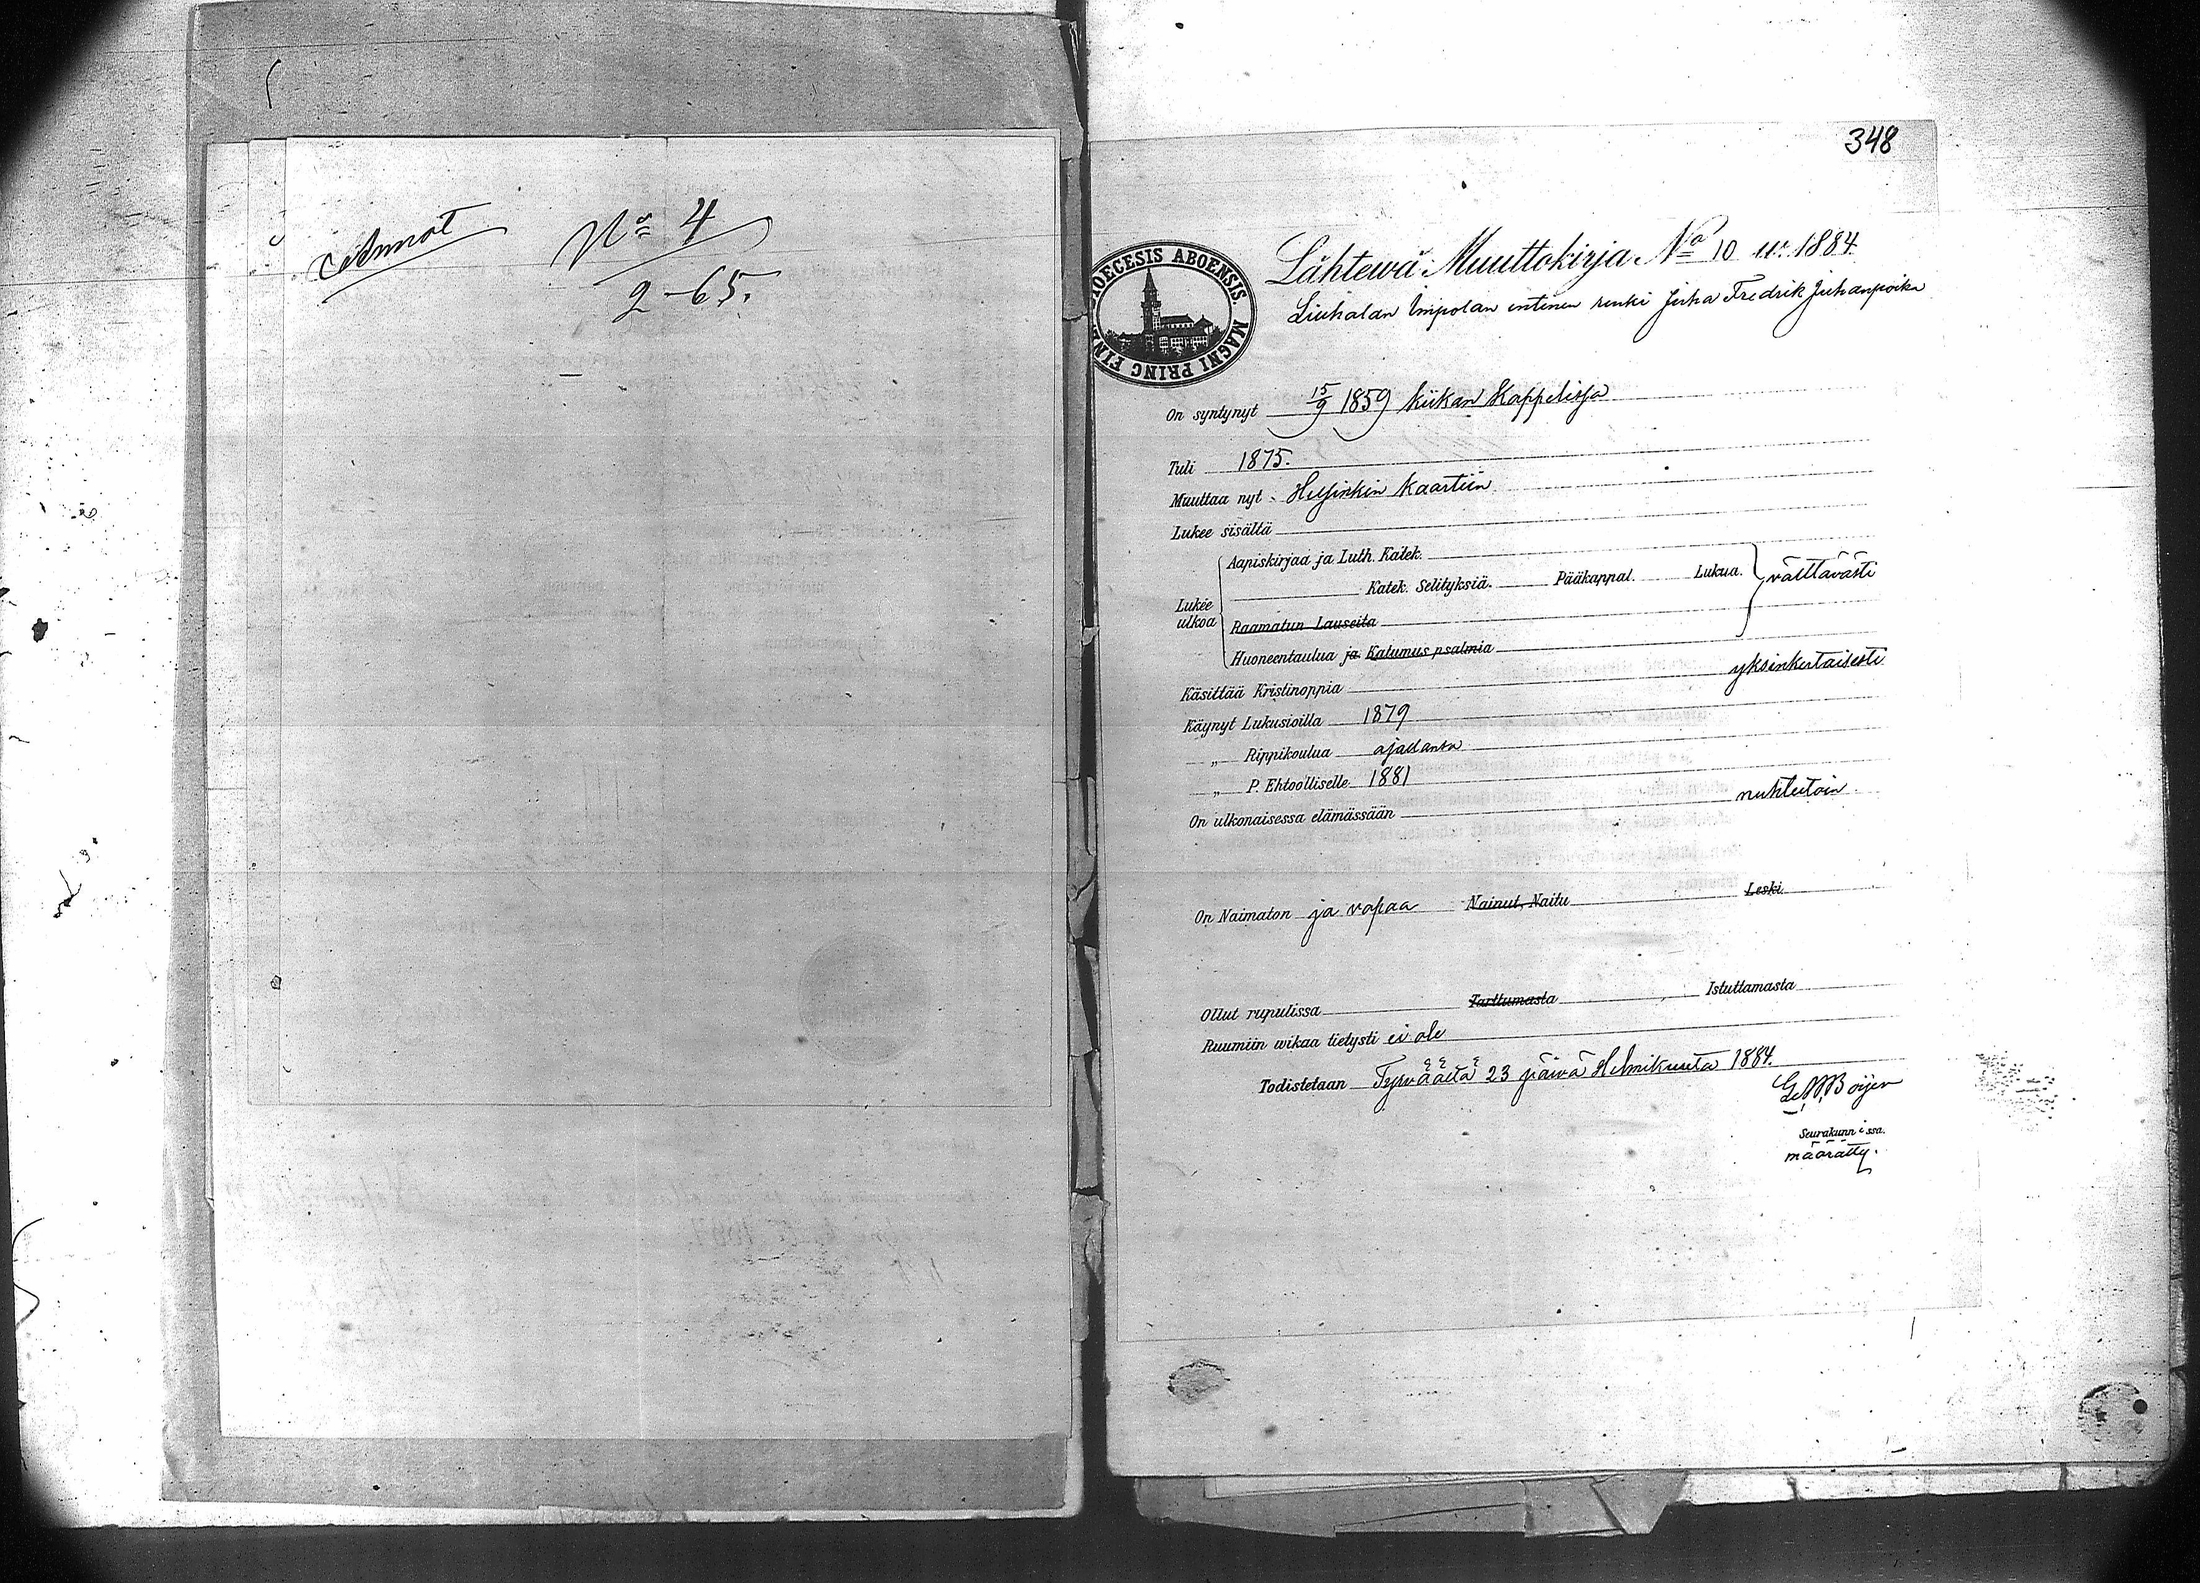 Annot
No 4
2-65.
348
DIOECESIS ABOENSIS. MAGNI PRINC FINL
Lähtewä Muuttokirja No 10 w. 1884.
Liuhalan Impolan entinen renki Juha Fredrik Juhanpoika
On syntynyt 15/9 1859 Kiikan Kappelissa
Tuli 1875.
Muuttaa nyt Helsinkin Kaartiin
Lukee sisältä
Lukee ulkoa
Aapiskirjaa ja Luth. Katek.
Katek. Selityksiä. Pääkappal. Lukua. välttävästi
Raamatun Lauseita
Huoneentaulua ja Katumus psalmia
Käsittää Kristinoppia yksinkertaisesti
Käynyt Lukusioilla 1879
„ Rippikoulua ajallansa
„ P. Ehtoolliselle 1881
On ulkonaisessa elämässään nuhteetoin.
On Naimaton ja vapaa Nainut, Naitu Leski.
Ollut rupulissa Tarttumasta Istuttamasta
Ruumiin wikaa tietysti ei ole
Todistetaan Tyrväältä 23 päivä Helmikuuta 1884.
Boijer
Seurakunnissa.
määrätty.